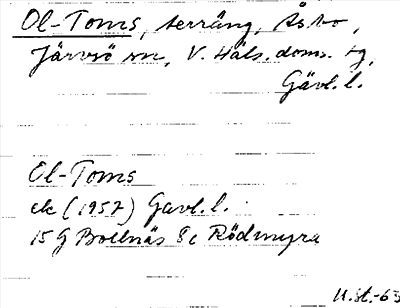 Ol-Toms, terräng, Åsbo,
Järvsö sn, V. Häls. doms. tg,
Gävl. l.
Ol-Toms
ek (1957) Gävl. l.
15 G Bollnäs 8c Rödmyra
U.st.-63